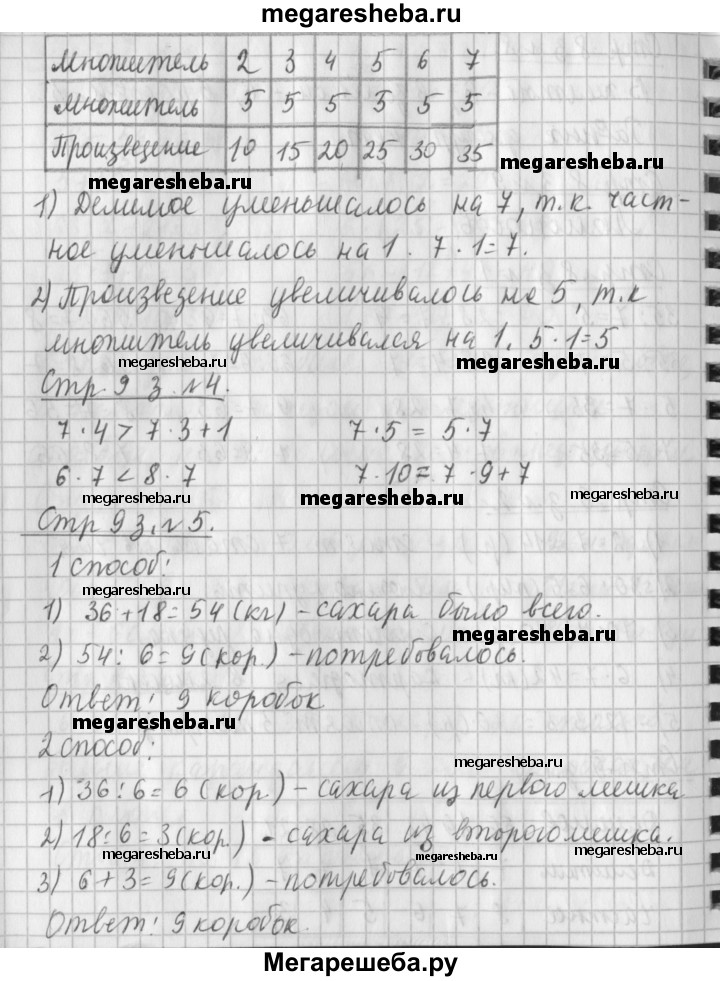 megaresheba.ru
Множитель 2 3 4 5 6 7
Множитель 5 5 5 5 5 5
Произведение 10 15 20 25 30 35
megaresheba.ru
megaresheba.ru
1) Делимое уменьшалось на 7, т.к. част-
ное уменьшалось на 1. 7·1=7.
2) Произведение увеличивалось на 5, т.к
множитель увеличивался на 1. 5·1=5
megaresheba.ru
megaresheba.ru
Стр. 9 з. №4.
7·4 > 7·3+1 7·5 = 5·7
6·7 < 8·7 7·10 = 7·9+7
megaresheba.ru
megaresheba.ru
megaresheba.ru
Стр 9 з. №5.
1 способ:
megaresheba.ru
1) 36+18=54(кг) - сахара было всего.
megaresheba.ru
2) 54:6=9(кор.) - потребовалось.
Ответ: 9 коробок
megaresheba.ru
2 способ:
megaresheba.ru
1) 36:6=6(кор.) - сахара из первого мешка
2) 18:6=3(кор.) - сахара из второго мешка.
megaresheba.ru
megaresheba.ru
3) 6+3=9(кор.) - потребовалось.
Ответ: 9 коробок.
megaresheba.ru
Мегарешеба.ру